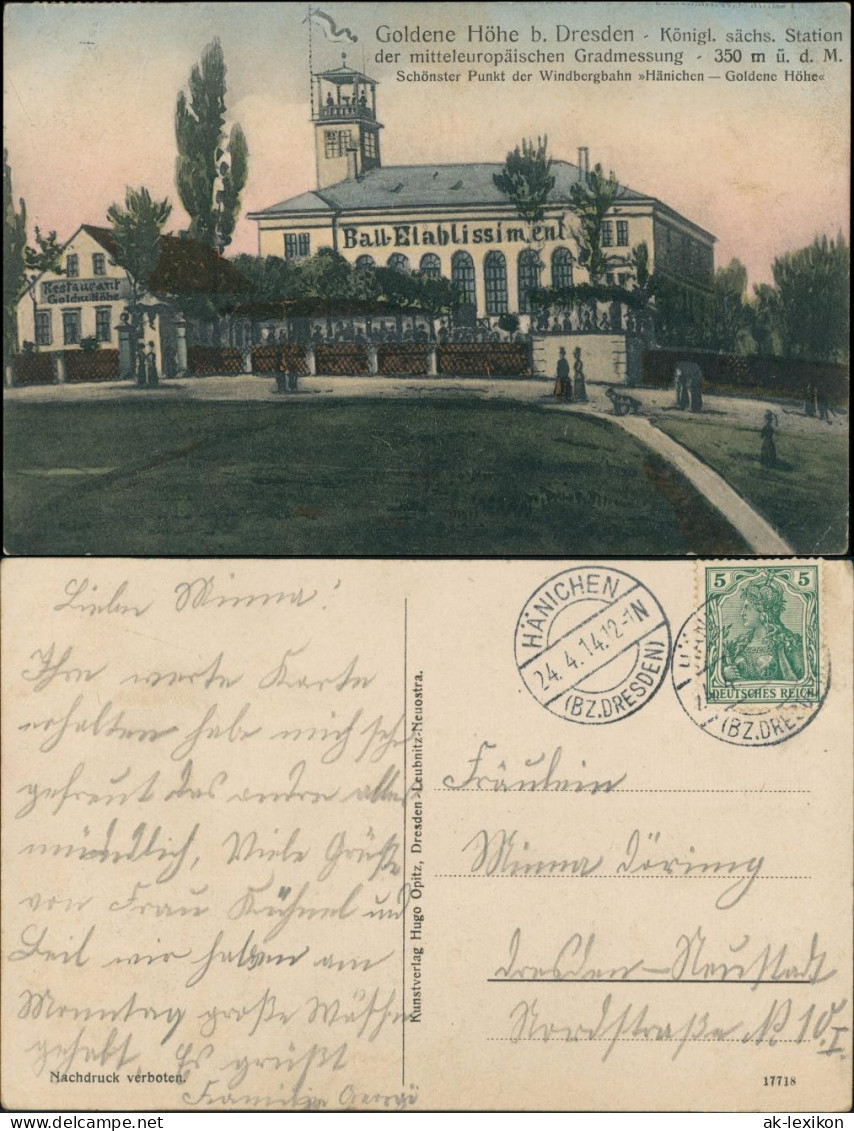 Goldene Höhe b. Dresden - Königl. sächs. Station
der mitteleuropäischen Gradmessung - 350 m ü. d. M.
Schönster Punkt der Windbergbahn »Hänichen — Goldene Höhe«
Ball-Etablissiment
Restaurant
Goldne Höhe
Liebe Minna!
Ihre werte Karte
erhalten habe mich sehr
gefreut das andre alles
mündlich, Viele Grüße
von Frau Kühnel und
wir haben am
Monntag große Wäsche
gehabt, Es grüßt
Familie
Nachdruck verboten.
Kunstverlag Hugo Opitz, Dresden-Leubnitz-Neuostra.
HÄNICHEN
24.4.14.12-1N
(BZ.DRESDEN)
5 5
DEUTSCHES REICH
HÄN
(BZ.DRES
Fräulein
Minna Döring
Dresden-Neustadt
Nordstraße N 10 I.
17718
ak-lexikon